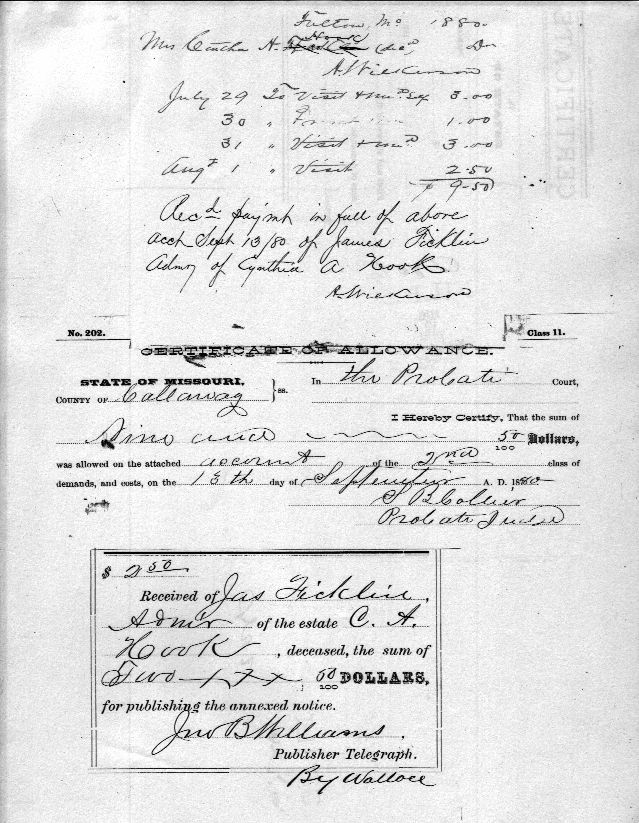 Fulton, Mo 1880.
Mrs Cintha A. Hook (decd) Dr
A Wilkerson
July 29 To Visit & 3.00
30 " 1.00
31 " Visit & 3.00
Augt 1 " Visit 2.50
$ 9.50
Recd paymt in full of above
acct Sept 13/80 of James Ficklin
Admr of Cynthia A Hook
A Wilkerson
No. 202. Class 11.
CERTIFICATE OF ALLOWANCE.
STATE OF MISSOURI, } ss. In the Probate Court,
COUNTY OF Callaway
I Hereby Certify, That the sum of
Nine and 50/100 Dollars,
was allowed on the attached account of the 2nd class of
demands, and costs, on the 13th day of September A. D. 1880
S B Collier
Probate Judge
$ 2 50
Received of Jas Ficklin,
Admr of the estate C. A.
Hook, deceased, the sum of
Two 50/100 DOLLARS,
for publishing the annexed notice.
Jno B Williams.
Publisher Telegraph.
By Wallace
CERTIFICATE